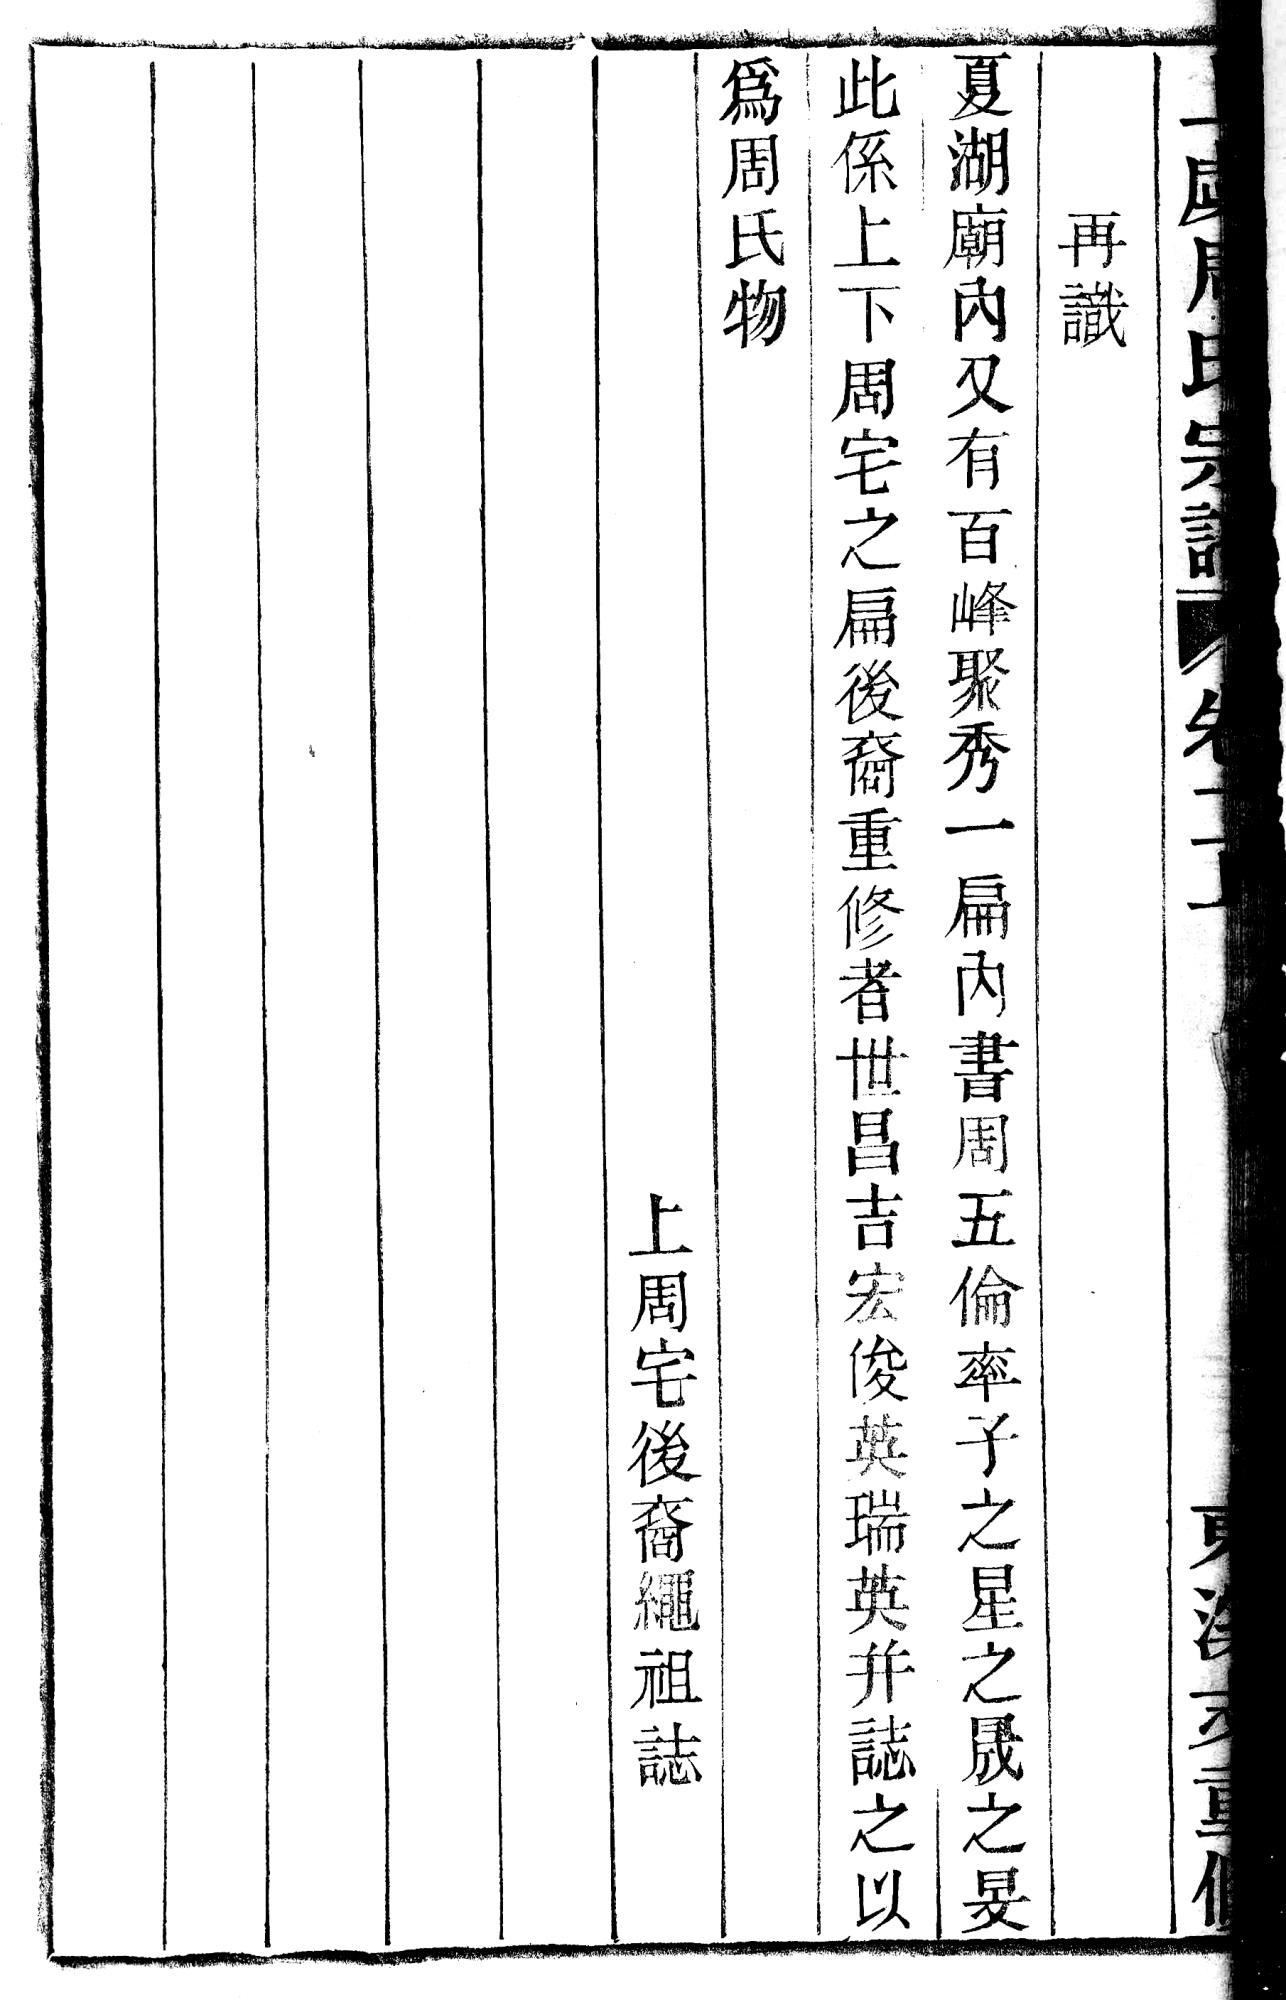 周氏宗譜 卷
重修
再識
夏湖廟內又有百峰聚秀一扁內書周五倫率子之星之晟之旻
此係上下周宅之扁後裔重修者世昌吉宏俊英瑞英幷誌之以
爲周氏物
上周宅後裔繩祖誌